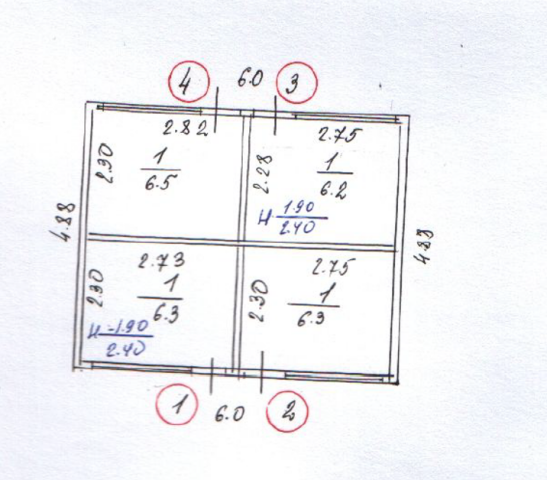 4 6.0 3
2.82 2.75
2.30 1 2.28 1
6.5 6.2
4.88 H 1.90 4.88
2.40
2.73 2.75
2.30 1 2.30 1
6.3 6.3
H-1.90
2.40
1 6.0 2